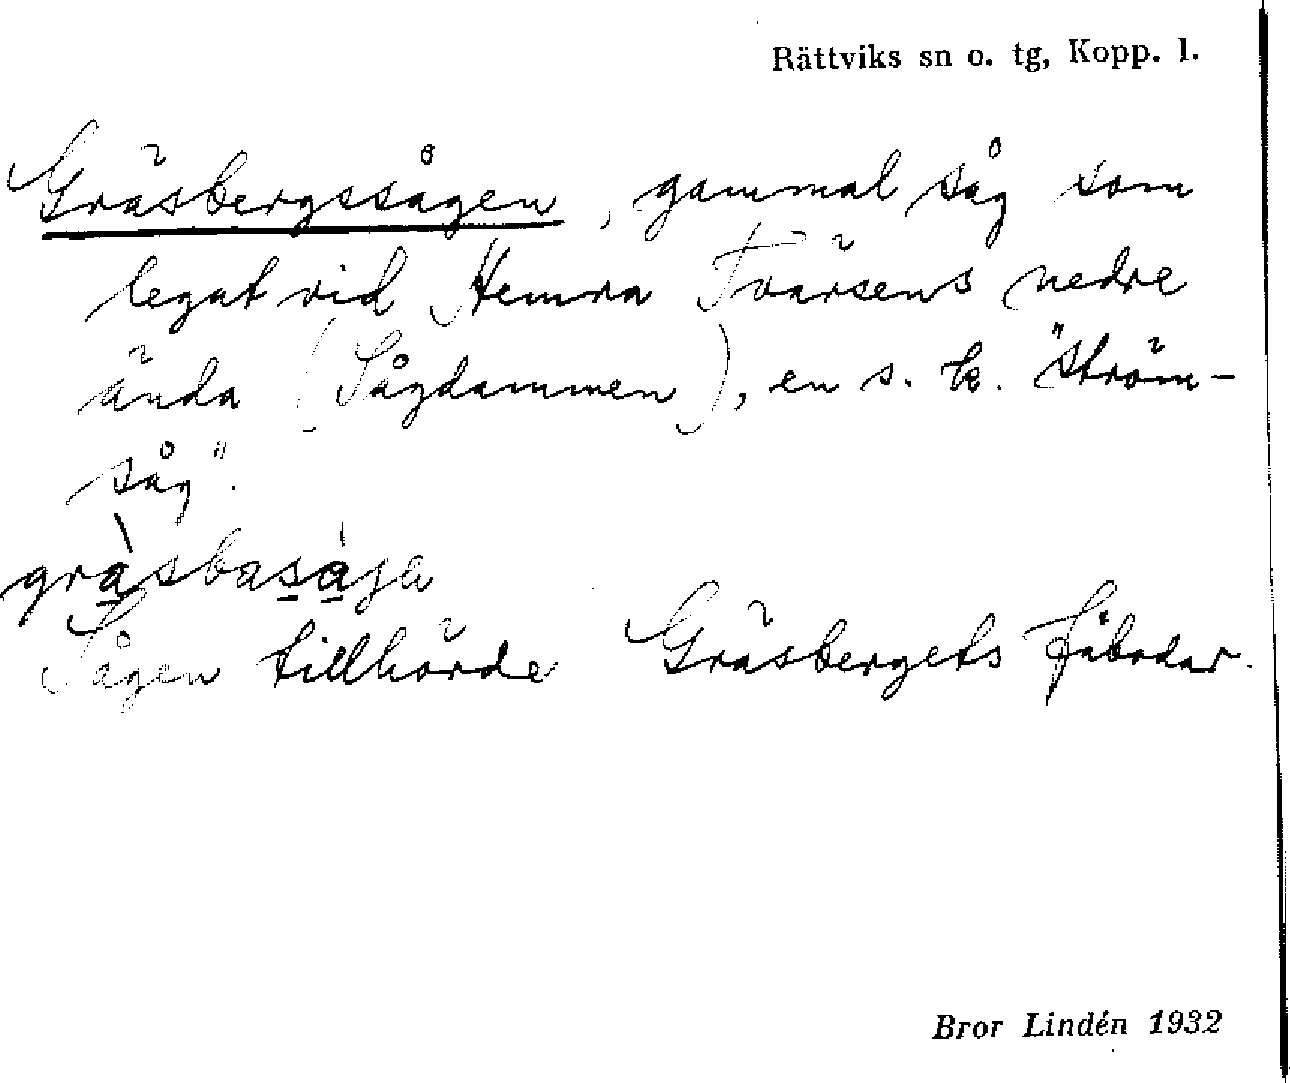 Rättviks sn o. tg, Kopp. l.
Gräsbergssågen, gammal såg som
legat vid Hemra Tvärsens nedre
ända (Sågdammen), en s. k. "ström-
såg".
gràsbasàja
Sågen tillhörde Gräsbergets fäbodar.
Bror Lindén 1932